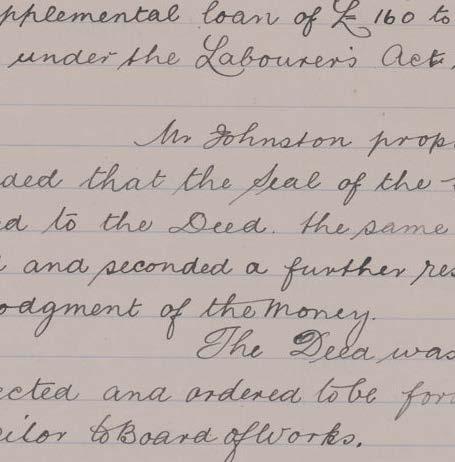 pplemental loan of £160 to
under the Labourer's Act,
Mr Johnston prop
ded that the Seal of the
ed to the Deed. the same
and seconded a further res
odgment of the Money.
The Deed was
ected and ordered to be for
citor to Board of Works.